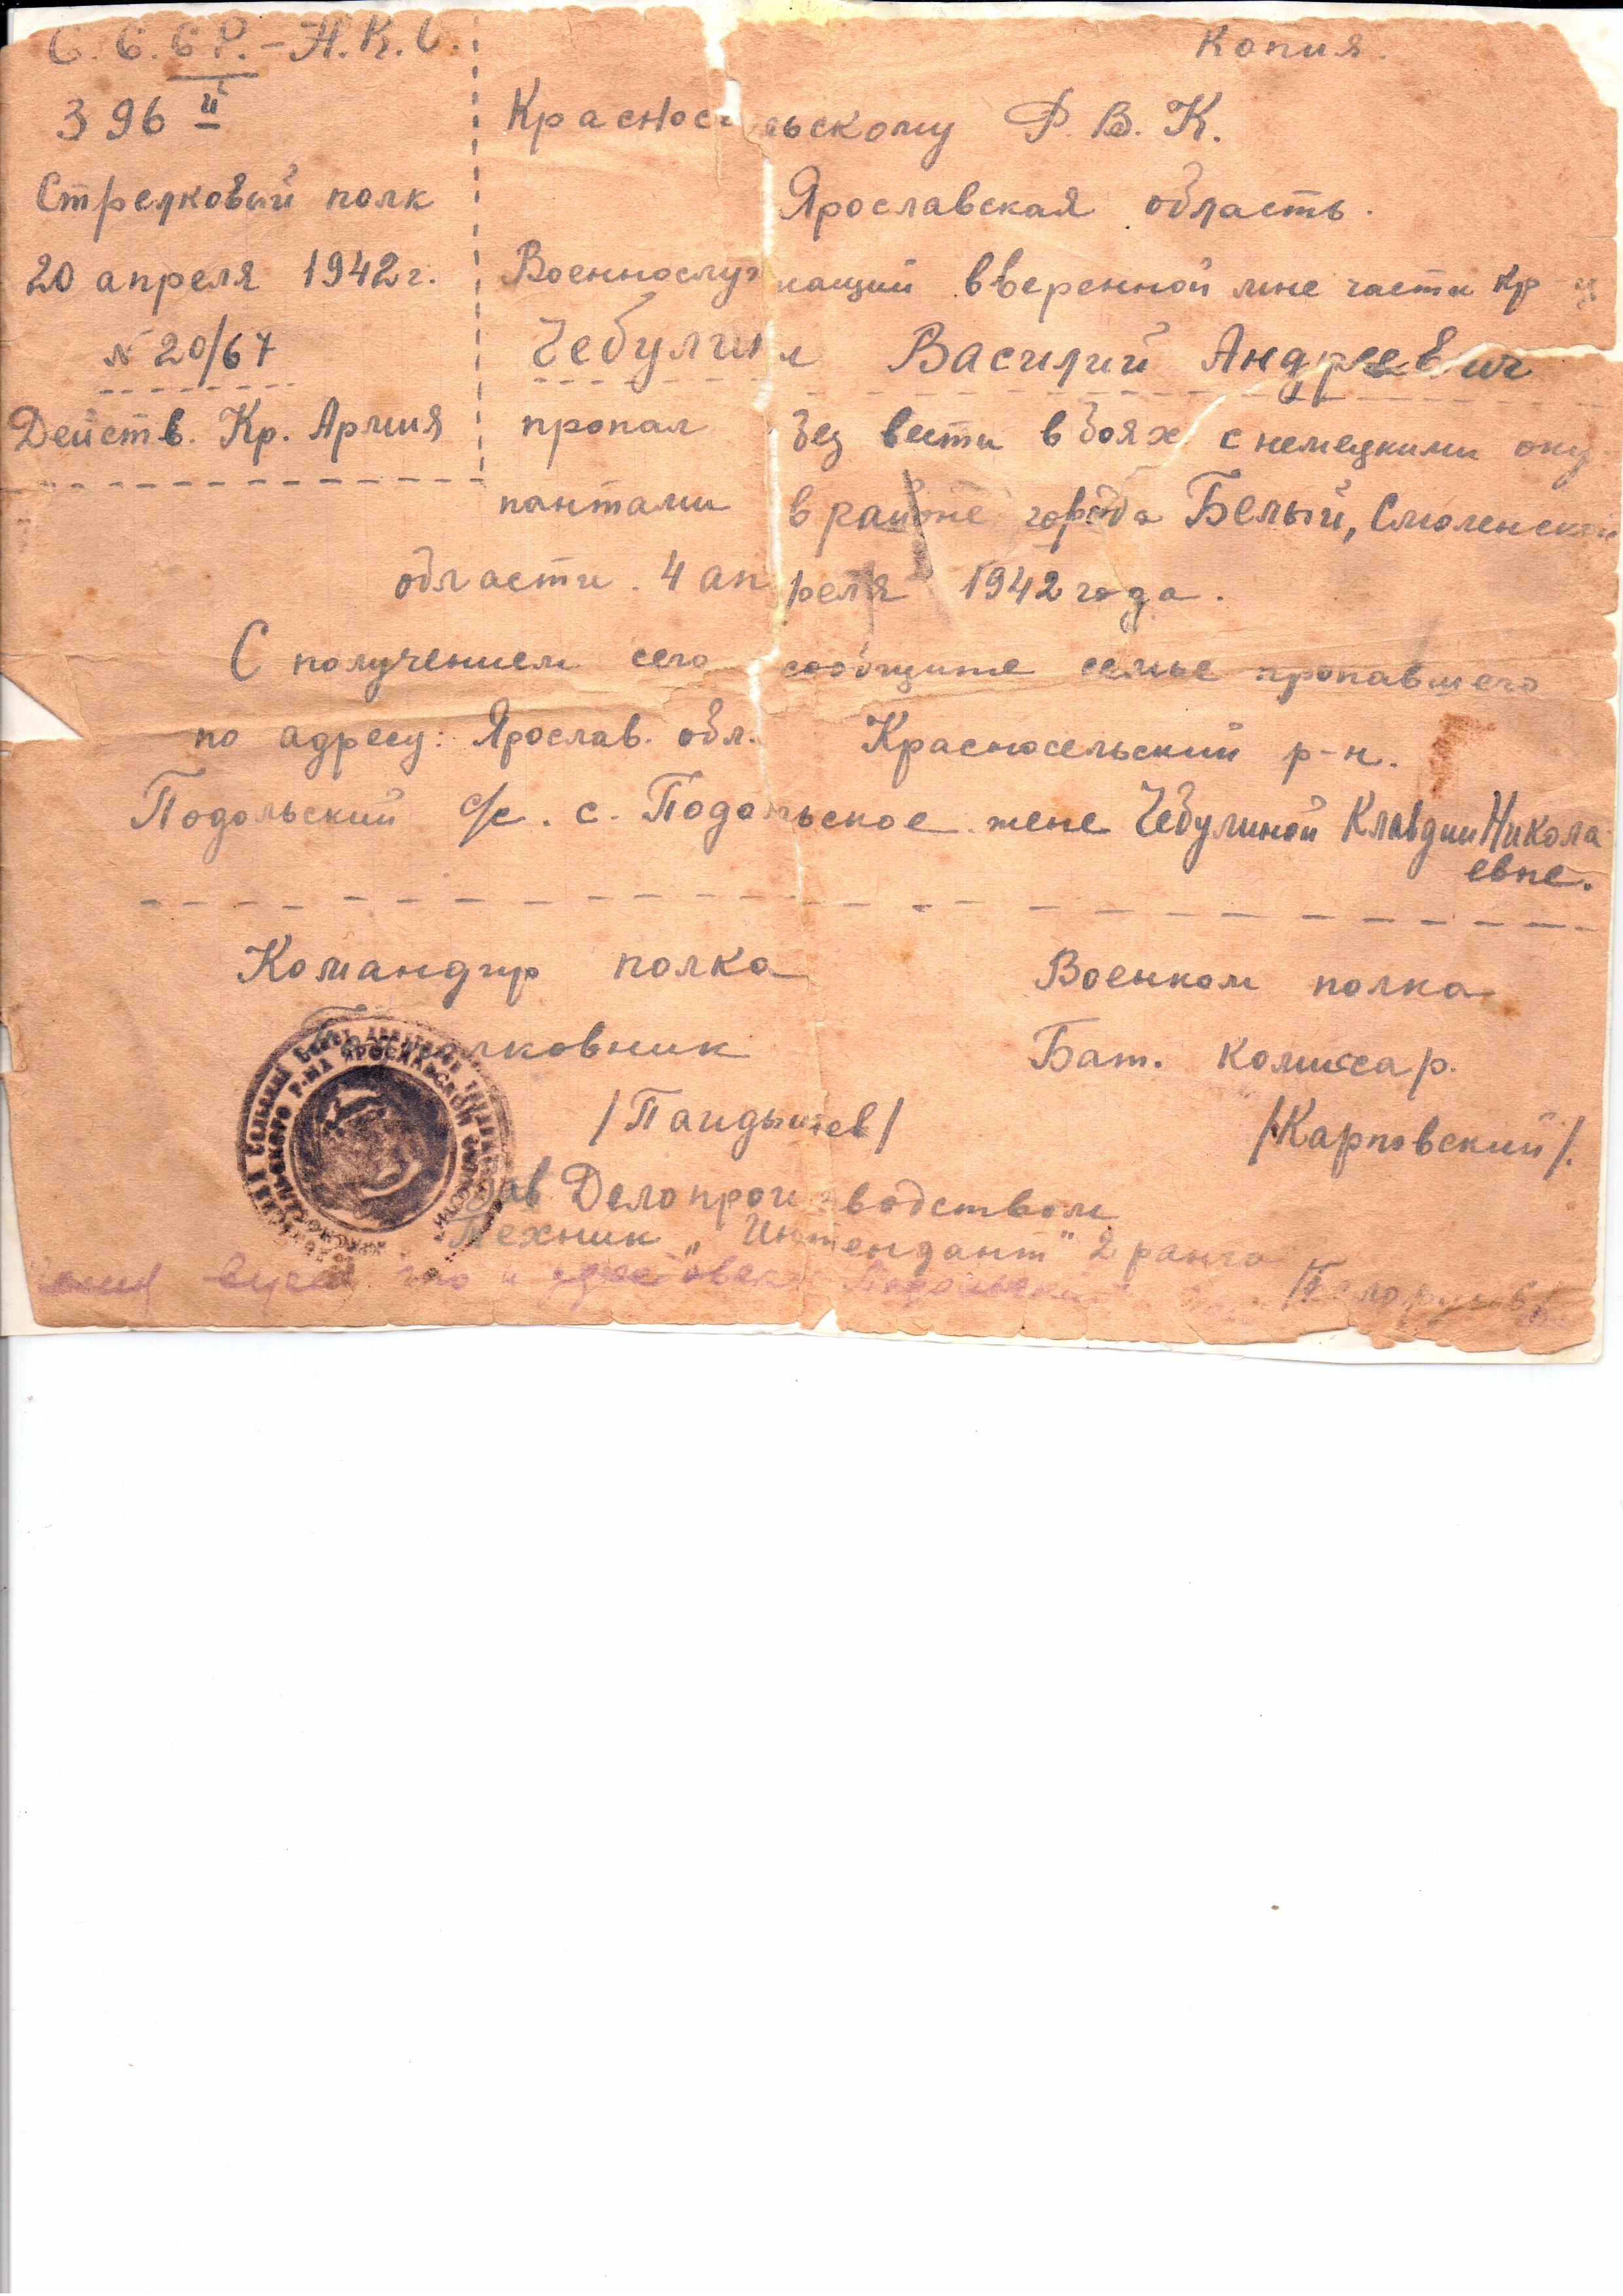 С.С.С.Р. - Н.К.О.
396 й
Стрелковый полк
20 апреля 1942 г.
№ 20/67
Действ. Кр. Армия
Копия.
Красносельскому Р.В.К.
Ярославская область.
Военнослужащий вверенной мне части кр-ц
Чебулин Василий Андреевич
пропал без вести в боях с немецкими оку
пантами в районе города Белый, Смоленской
области. 4 апреля 1942 года.
С получением сего сообщите семье пропавшего
по адресу: Ярослав. обл. Красносельский р-н.
Подольский с/с. с. Подольское жене Чебулиной Клавдии Никола
евне.
Командир полка
Военком полка
Бат. комиссар.
/Карповский/.
Зав Делопроизводством
Техник „Интендант" 2 ранга